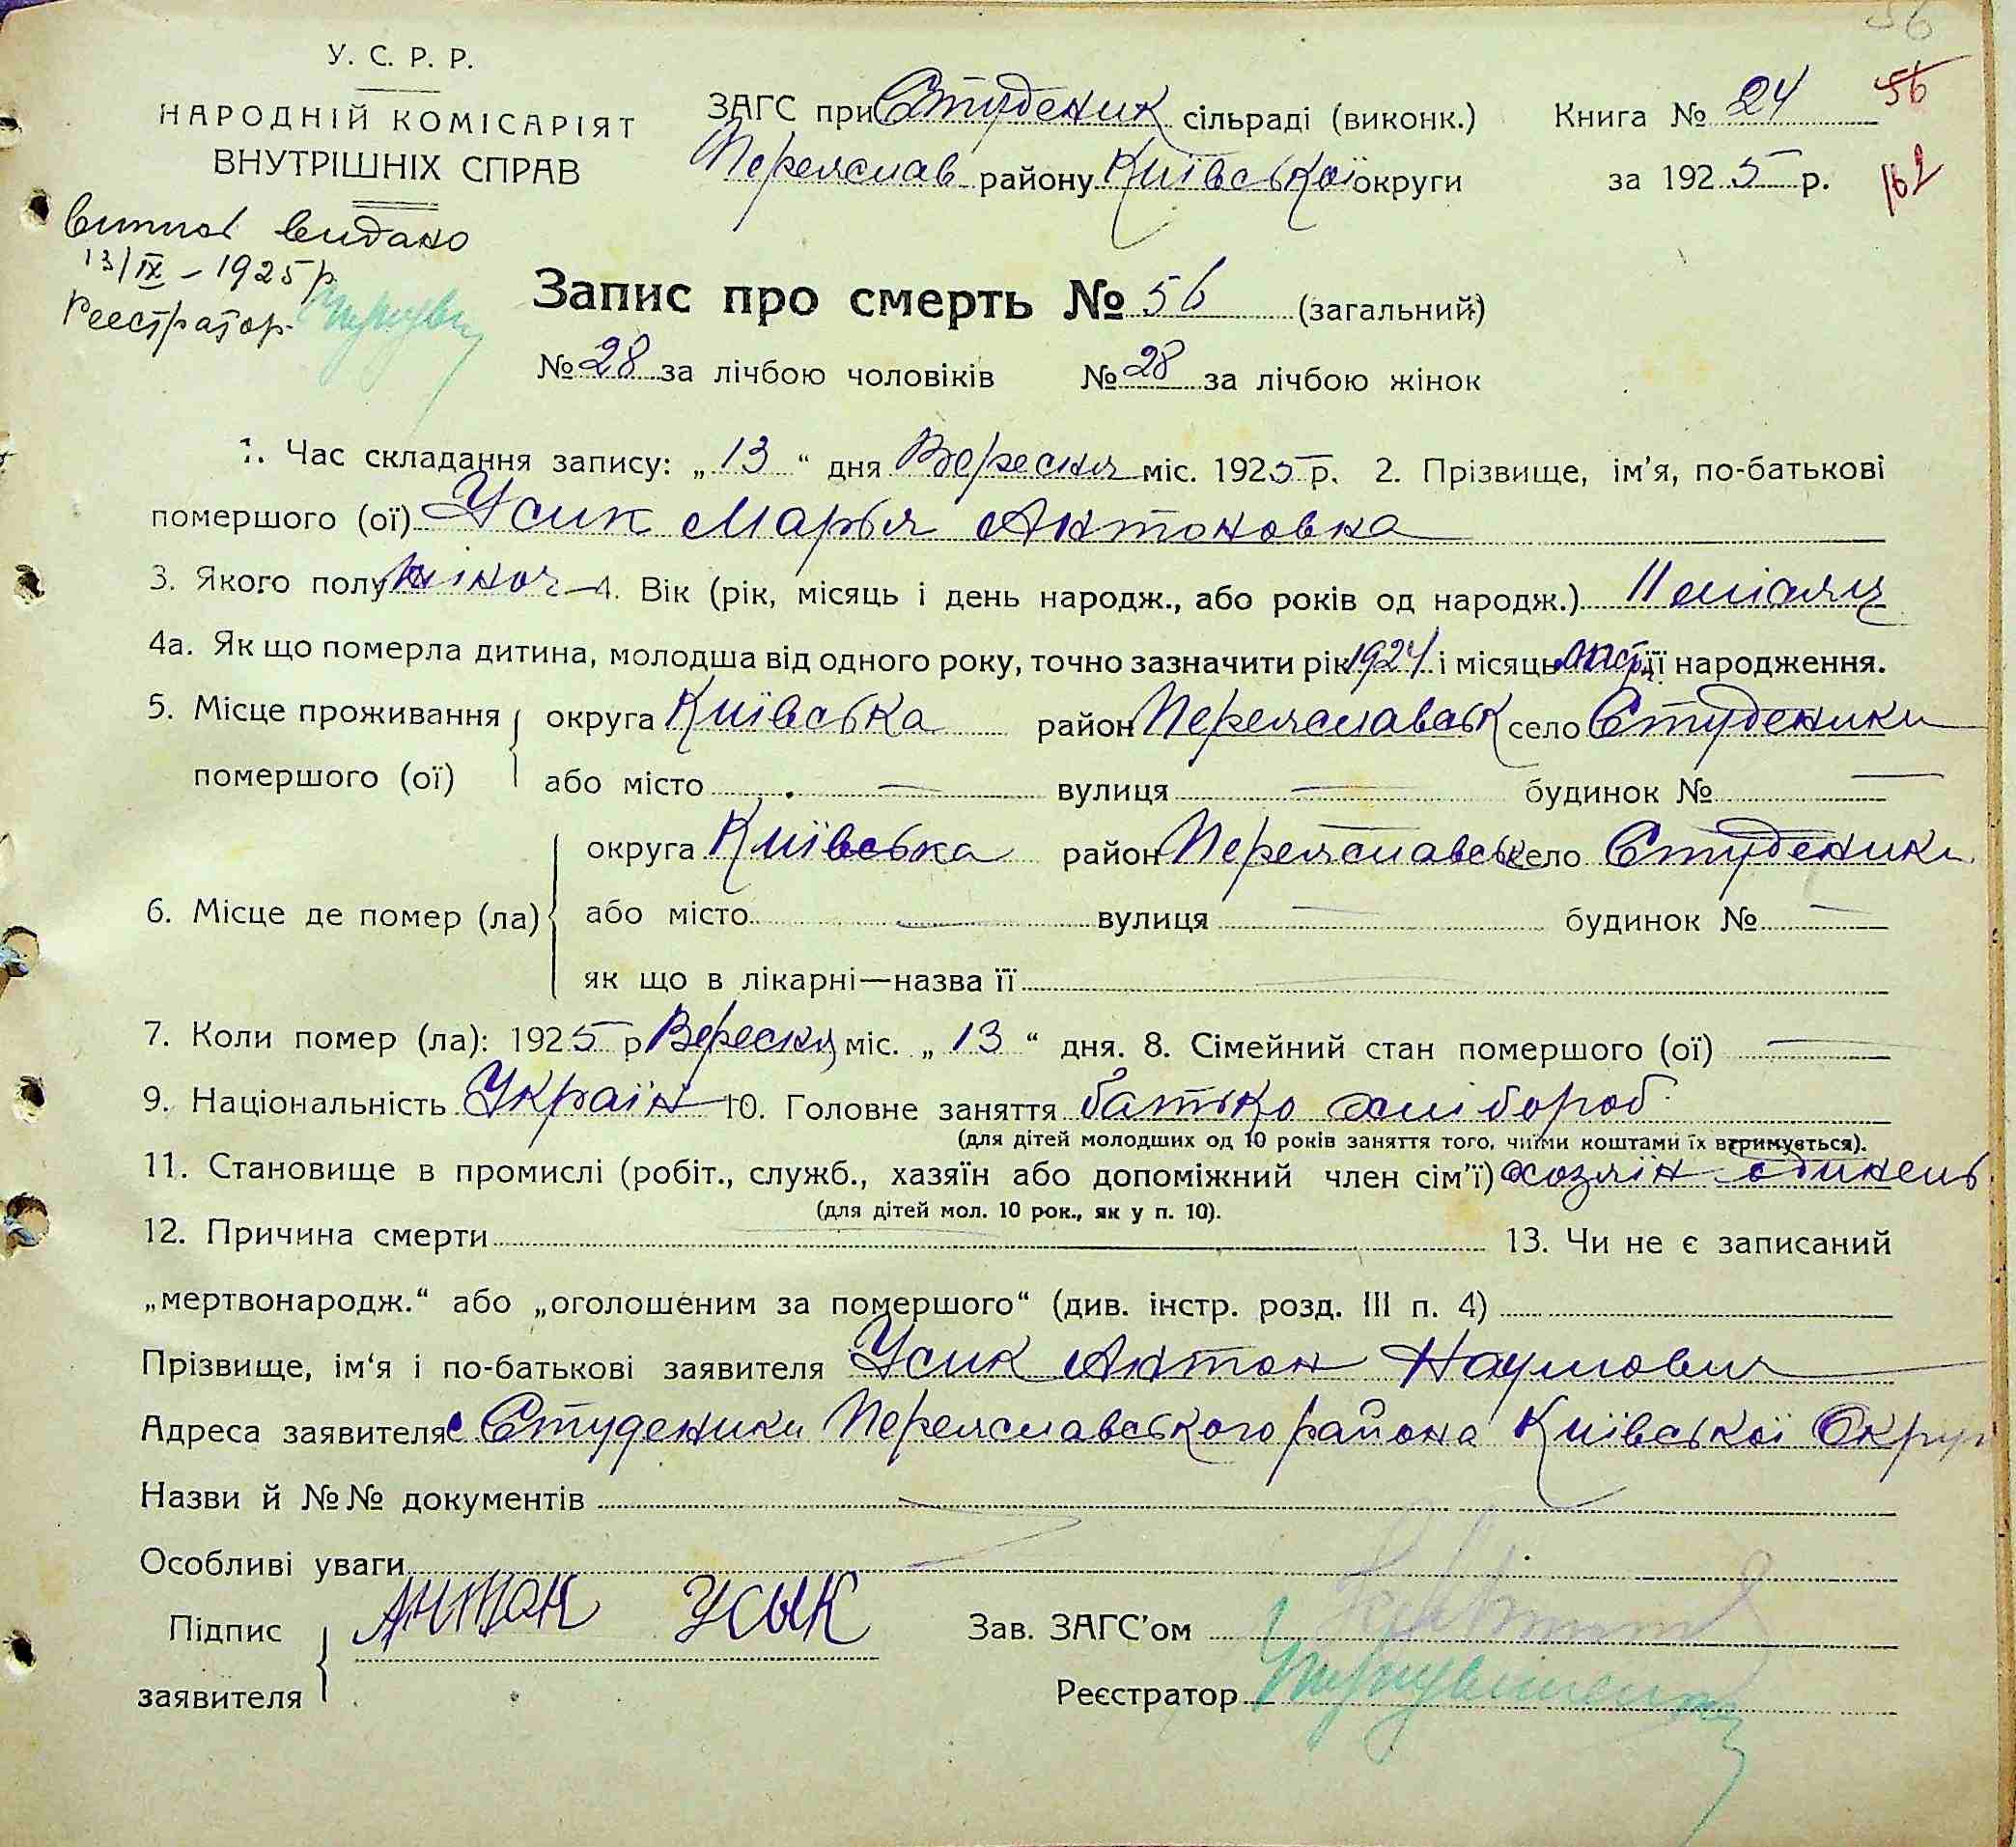 56
У. С. Р. Р.
НАРОДНІЙ КОМІСАРІЯТ
ВНУТРІШНІХ СПРАВ
ЗАГС при Студеник сільраді (виконк.)
Переяслав району Київської округи
Книга № 24 56
за 1925 р. 162
витяг видано
13/IX – 1925 р
Реестратор
Запис про смерть № 56 (загальний)
№ 28 за лічбою чоловіків № 28 за лічбою жінок
1. Час складання запису: „ 13 “ дня Вересня міс. 1925 р. 2. Прізвище, ім'я, по-батькові
помершого (ої) Усик Марья Антоновна
3. Якого полу жіноч 4. Вік (рік, місяць і день народж., або років од народж.) 11 місяц
4а. Як що померла дитина, молодша від одного року, точно зазначити рік 1924 і місяць її народження.
5. Місце проживання помершого (ої) округа Київська район Переяславськ село Студеники
або місто — вулиця — будинок № —
6. Місце де помер (ла) округа Київська район Переяславськ село Студеники
або місто — вулиця — будинок № —
як що в лікарні—назва її
7. Коли помер (ла): 1925 р Вересня міс. „ 13 “ дня. 8. Сімейний стан помершого (ої) —
9. Національність Україн 10. Головне заняття батько хлібороб
(для дітей молодших од 10 років заняття того, чиїми коштами їх втримується).
11. Становище в промислі (робіт., служб., хазяїн або допоміжний член сім'ї) хозяїн одинець
(для дітей мол. 10 рок., як у п. 10).
12. Причина смерти 13. Чи не є записаний
„мертвонародж.“ або „оголошеним за помершого“ (див. інстр. розд. III п. 4)
Прізвище, ім'я і по-батькові заявителя Усик Антон Наумович
Адреса заявителя с Студеники Переяславського района Київської Округ
Назви й №№ документів
Особливі уваги
Підпис заявителя Антон Усык
Зав. ЗАГС'ом
Реєстратор